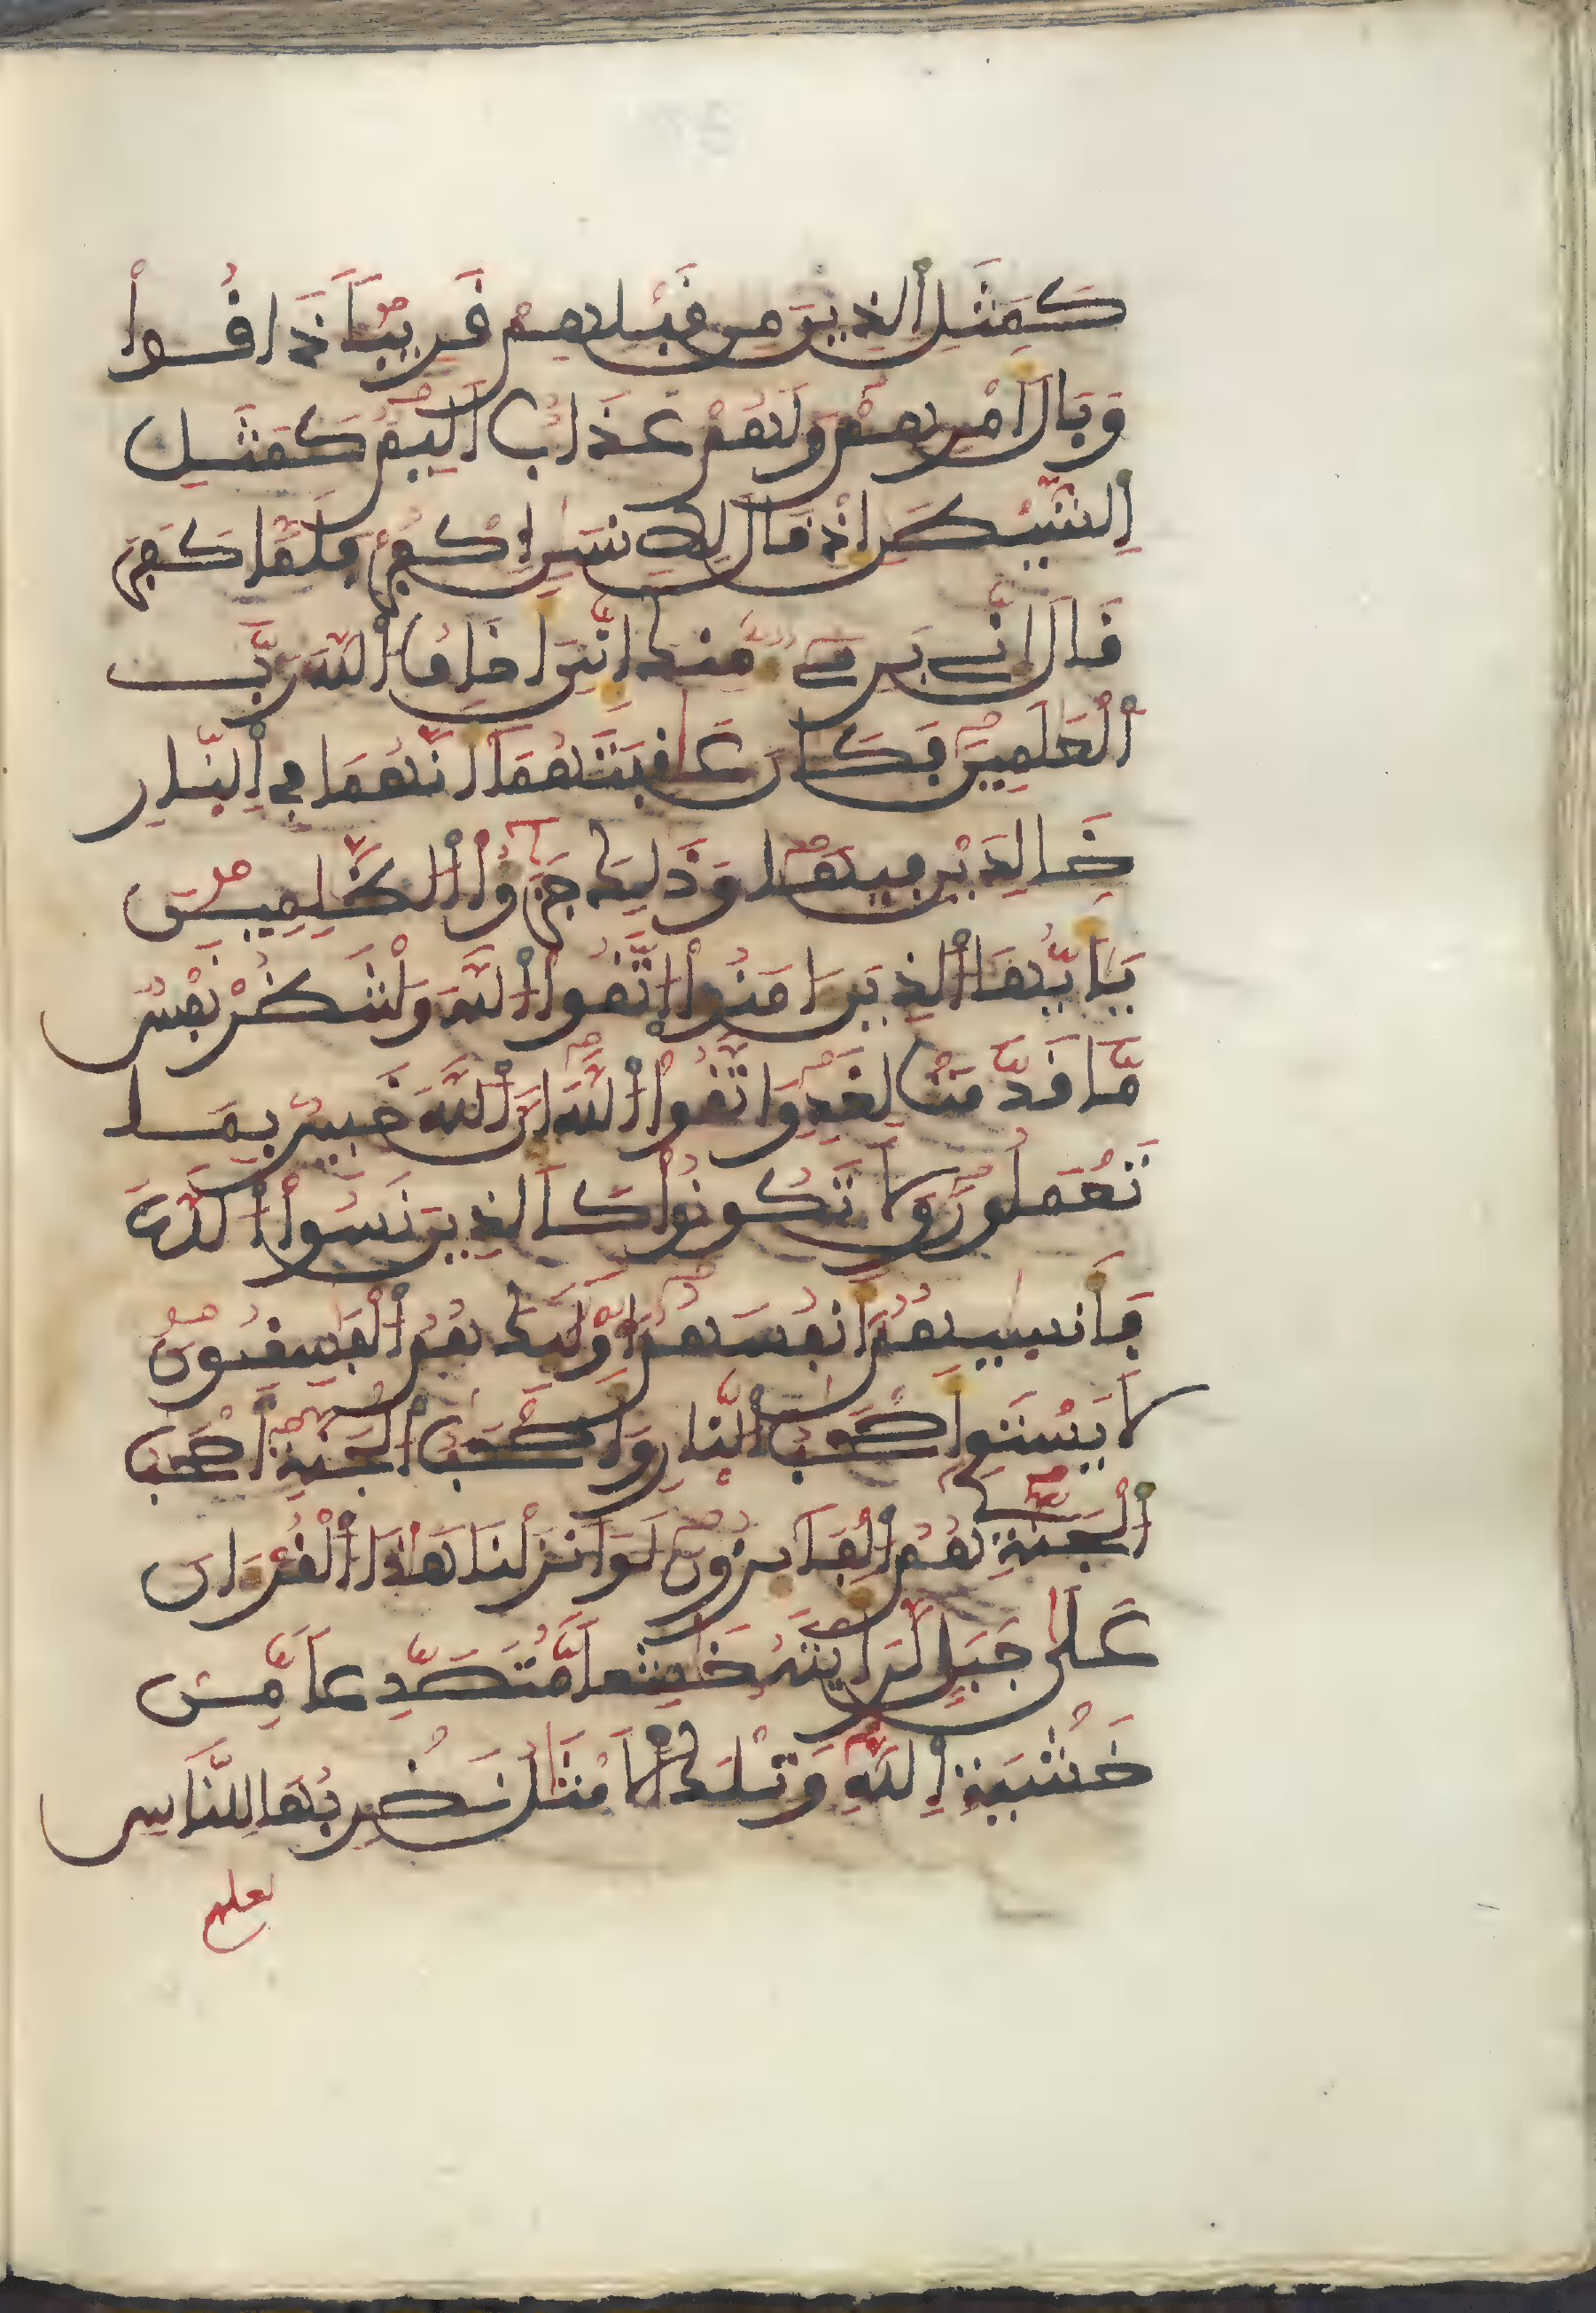 كَمَثَلِ اَ۬لذِينَ مِن قَبْلِهِمْ قَرِيباٗ ذَاقُواْ
وَبَالَ أَمْرِهِمْ وَلَهُمْ عَذَابٌ أَلِيمٞ كَمَثَلِ
اِ۬لشَّيْطَٰنِ إِذْ قَالَ لِلِانسَٰنِ اِ۟كْفُرْ فَلَمَّا كَفَرَ
قَالَ إِنِّے بَرِےٓءٞ مِّنكَ إِنِّيَ أَخَافُ اُ۬للَّهَ رَبَّ
اَ۬لْعَٰلَمِينَ فَكَانَ عَٰقِبَتَهُمَآ أَنَّهُمَا فِے اِ۬لنّ۪ارِ
خَٰلِدَيْنِ فِيهَا وَذَٰلِكَ جَزَٰٓؤُاْ اُ۬لظَّٰلِمِينَ
يَٰٓأَيُّهَا اَ۬لذِينَ ءَامَنُواْ اُ۪تَّقُواْ اُ۬للَّهَ وَلْتَنظُرْ نَفْسٞ
مَّا قَدَّمَتْ لِغَدٖ وَاتَّقُواْ اُ۬للَّهَ إِنَّ اَ۬للَّهَ خَبِيرُۢ بِمَا
تَعْمَلُونَ وَلَا تَكُونُواْ كَالذِينَ نَسُواْ اُ۬للَّهَ
فَأَنس۪يٰهُمُۥٓ أَنفُسَهُمُۥٓ أُوْلَٰٓئِكَ هُمُ اُ۬لْفَٰسِقُونَ
لَا يَسْتَوِےٓ أَصْحَٰبُ اُ۬لنّ۪ارِ وَأَصْحَٰبُ اُ۬لْجَنَّةِ أَصْحَٰبُ
اُ۬لْجَنَّةِ هُمُ اُ۬لْفَآئِزُونَ لَوَ اَنزَلْنَا هَٰذَا اَ۬لْقُرْءَانَ
عَلَىٰ جَبَلٖ لَّرَأَيْتَهُۥ خَٰشِعاٗ مُّتَصَدِّعاٗ مِّنْ
خَشْيَةِ اِ۬للَّهِ وَتِلْكَ اَ۬لَامْثَٰلُ نَضْرِبُهَا لِلنَّاسِ
لعلهم